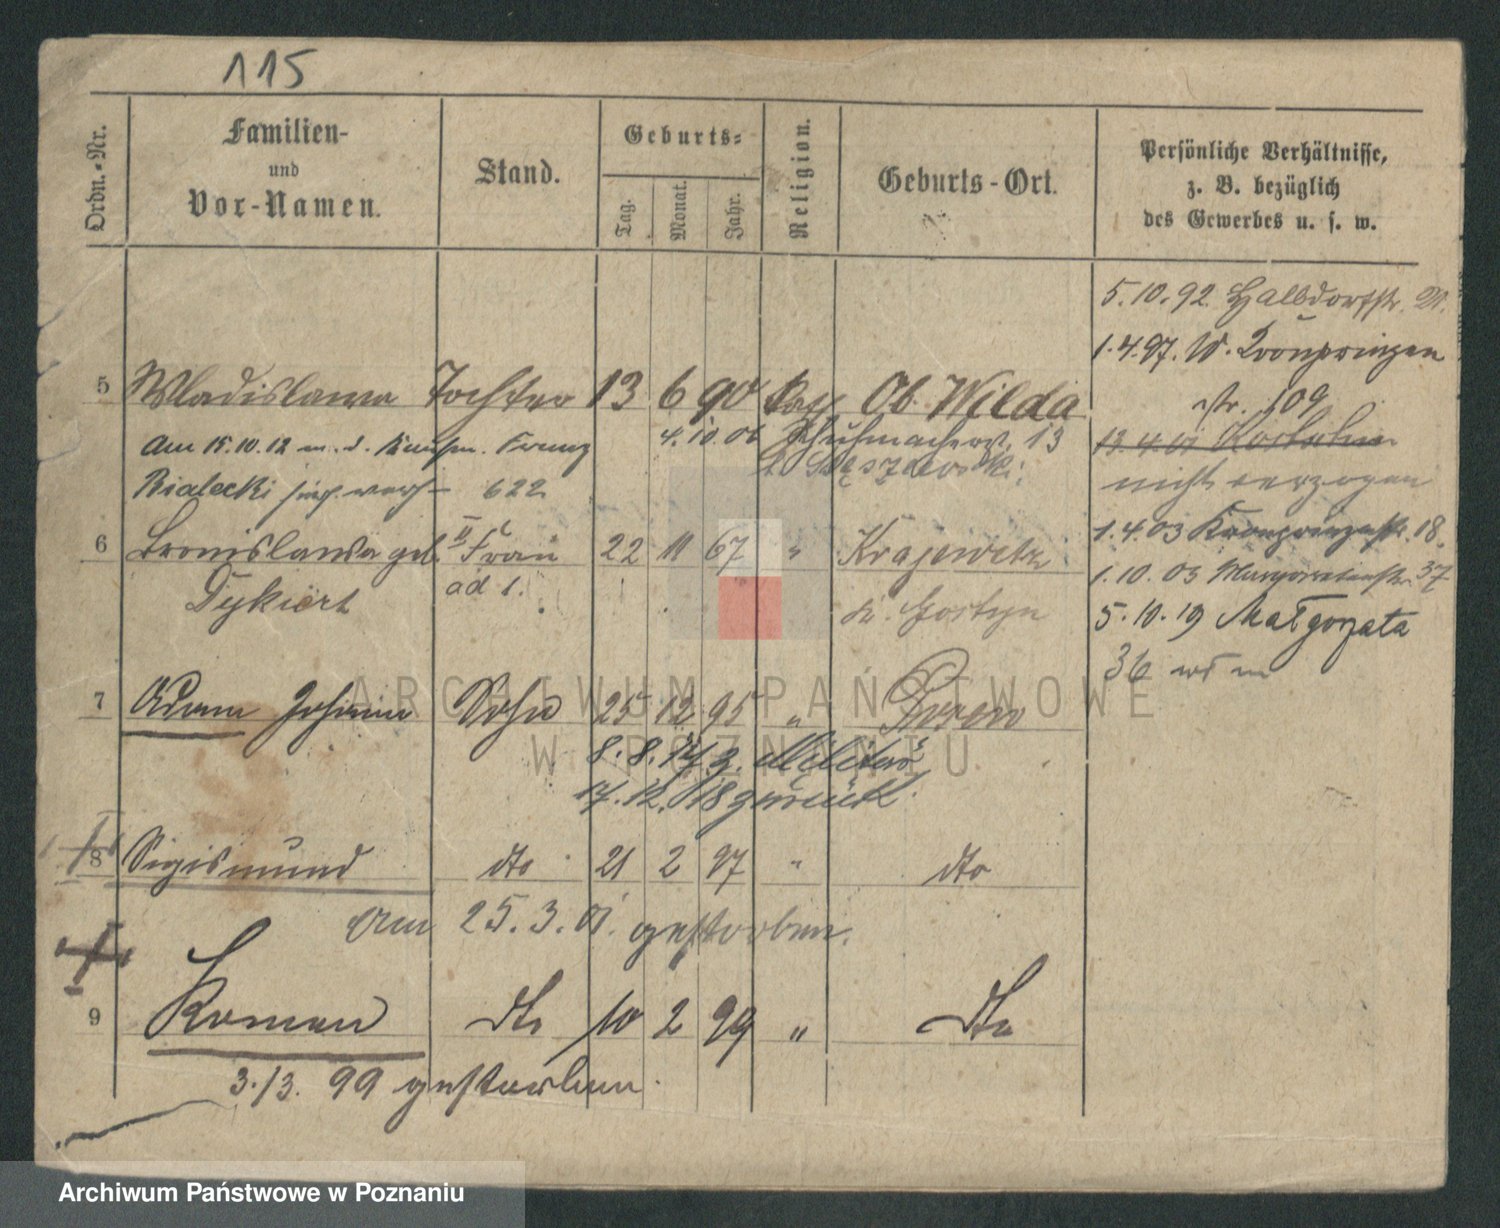 115
Ordn.-Nr.
Familien-
und
Vor-Namen.
Stand.
Geburts-
Tag.
Monat.
Jahr.
Religion.
Geburts-Ort.
Persönliche Verhältnisse,
z. B. bezüglich
des Gewerbes u. s. w.
5.10.92 Halbdorfstr.
1.4.97. W. Kronprinzen
str. 109
5 Wladislawa Tochter 13 6 90 kath Ob. Wilda
am 15.10.12 m. d. Franz
4.10.06 Schuhmacher 13
Bialecki verh 622
nicht verzogen
6 Bronislawa geb. II Frau 22 11 67 " Krajewitz
ad 1.
Dykiert
Kr. Gostyn
1.4.03 Kronprinzenstr. 18.
1.10.05 Margaretenstr. 37
5.10.19 Małgorzata
36
7 Adam Johann Sohn 25 12 95 " Posen
8.8.17 z. Militär
17.12.18 zurück.
8 Sigismund dto 21 2 97 " dto
Am 25.3.01. gestorben.
9 Roman dto 10 2 99 " dto
3./3. 99 gestorben.
ARCHIWUM PAŃSTWOWE
W POZNANIU
Archiwum Państwowe w Poznaniu